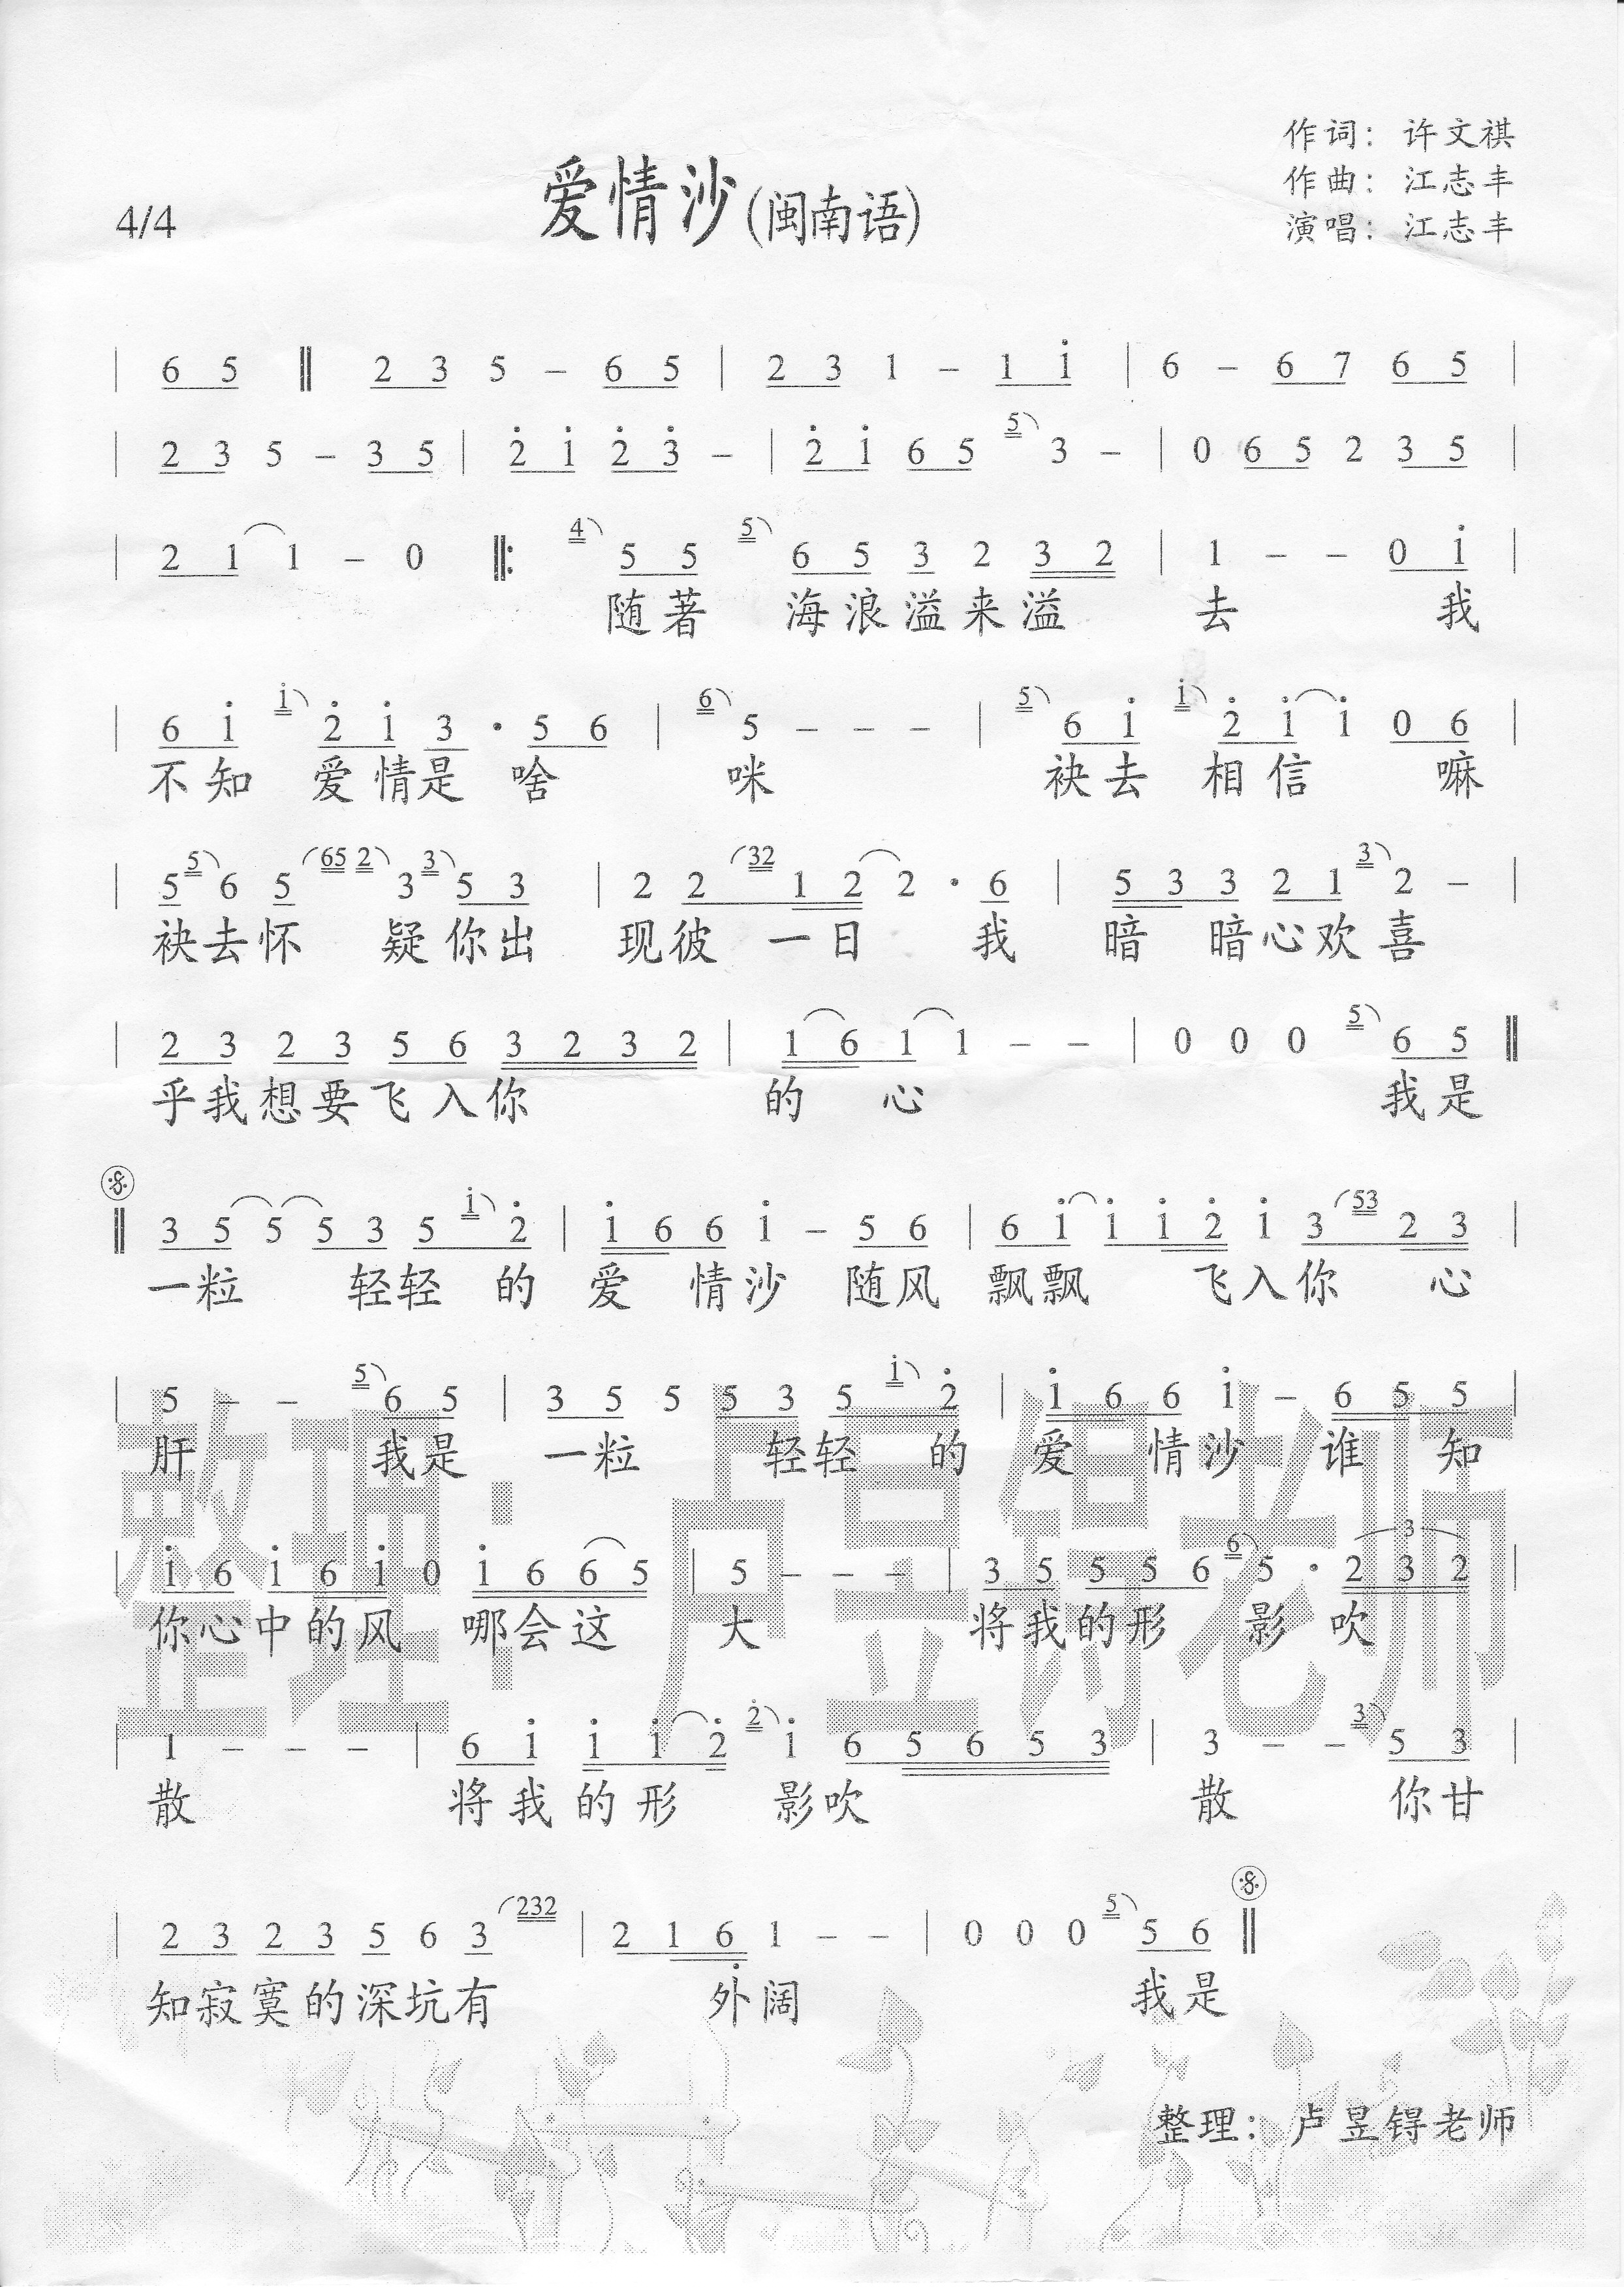 作词：许文祺
爱情沙(闽南语)
作曲：江志丰
4/4
演唱：江志丰
| 6 5 ‖ 2 3 5 – 6 5 | 2 3 1 – 1 i | 6 – 6 7 6 5 |
| 2 3 5 – 3 5 | 2̇ i 2̇ 3̇ – | 2̇ i 6 5 5 3 – | 0 6 5 2 3 5 |
| 2 1 1 – 0 ‖: 4 5 5 5 6 5 3 2 3 2 | 1 – – 0 i |
随著 海浪溢来溢 去 我
| 6 i i 2̇ i 3 · 5 6 | 6 5 – – – | 5 6 i i 2̇ i i 0 6 |
不知 爱情是 啥 咪 袂去 相信 嘛
| 5 5 6 5 65 2 3 3 5 3 | 2 2 32 1 2 2 · 6 | 5 3 3 2 1 3 2 – |
袂去怀 疑你出 现彼 一日 我 暗 暗心欢喜
| 2 3 2 3 5 6 3 2 3 2 | 1 6 1 1 – – | 0 0 0 5 6 5 ‖
乎我想要飞入你 的 心 我是
‖ 3 5 5 5 3 5 i 2̇ | i 6 6 i – 5 6 | 6 i i i 2̇ i 3 53 2 3 |
一粒 轻轻 的 爱 情沙 随风 飘飘 飞入你 心
| 5 – – 5 6 5 | 3 5 5 5 3 5 i 2̇ | i 6 6 i – 6 5 5 |
肝 我是 一粒 轻轻 的 爱 情沙 谁 知
| i 6 i 6 i 0 i 6 6 5 | 5 – – – | 3 5 5 5 6 6 5 · 3 2 3 2 |
你心中的风 哪会这 大 将我的形 影 吹
| 1 – – – | 6 i i i 2̇ 2̇ i 6 5 6 5 3 | 3 – – 3 5 3 |
散 将我的形 影吹 散 你甘
| 2 3 2 3 5 6 3 232 | 2 1 6̣ 1 – – | 0 0 0 5 5 6 ‖
知寂寞的深坑有 外阔 我是
整理：卢昱锝老师
整理：卢昱锝老师